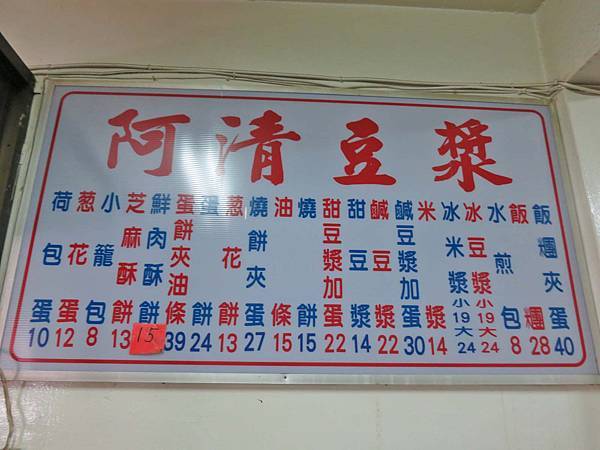 阿清豆漿
荷包蛋10
葱花蛋12
小籠包8
芝麻酥餅13
鮮肉酥餅15
蛋餅夾油條39
蛋餅24
葱花餅13
燒餅夾蛋27
油條15
燒餅15
甜豆漿加蛋22
甜豆漿14
鹹豆漿22
鹹豆漿加蛋30
米漿14
冰米漿小19大24
冰豆漿小19大24
水煎包8
飯糰28
飯糰夾蛋40